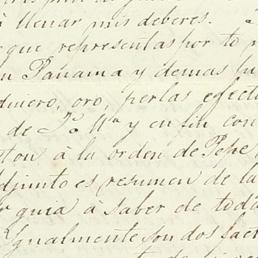 á llenar mis deberes.
que representas por to p
Panama y demas pu
dinero, oro, perlas efect
de S. Ma y en fin con
á la orden de Pepe
djunto es resumen de la
guia á saber de todas
Igualmente son dos fac